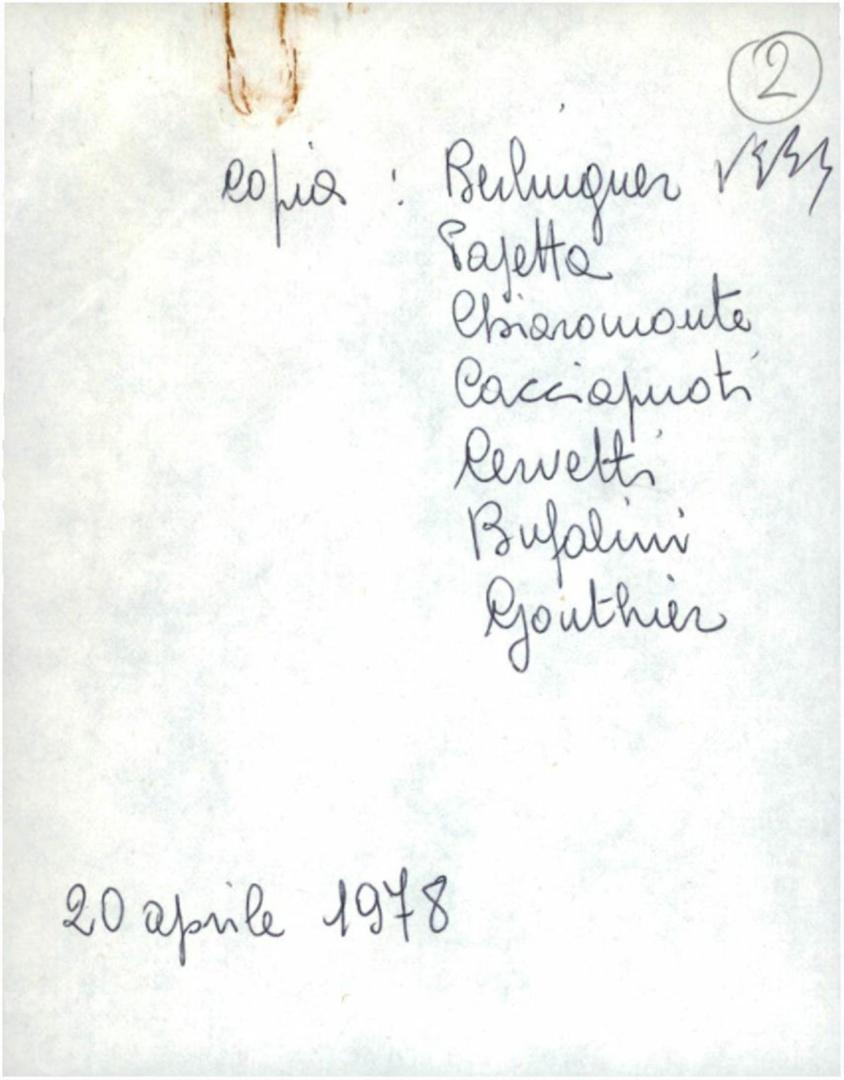 2
copia : Berlinguer
Pajetta
Chiaromonte
Cacciapuoti
Cervetti
Bufalini
Gouthier
20 aprile 1978